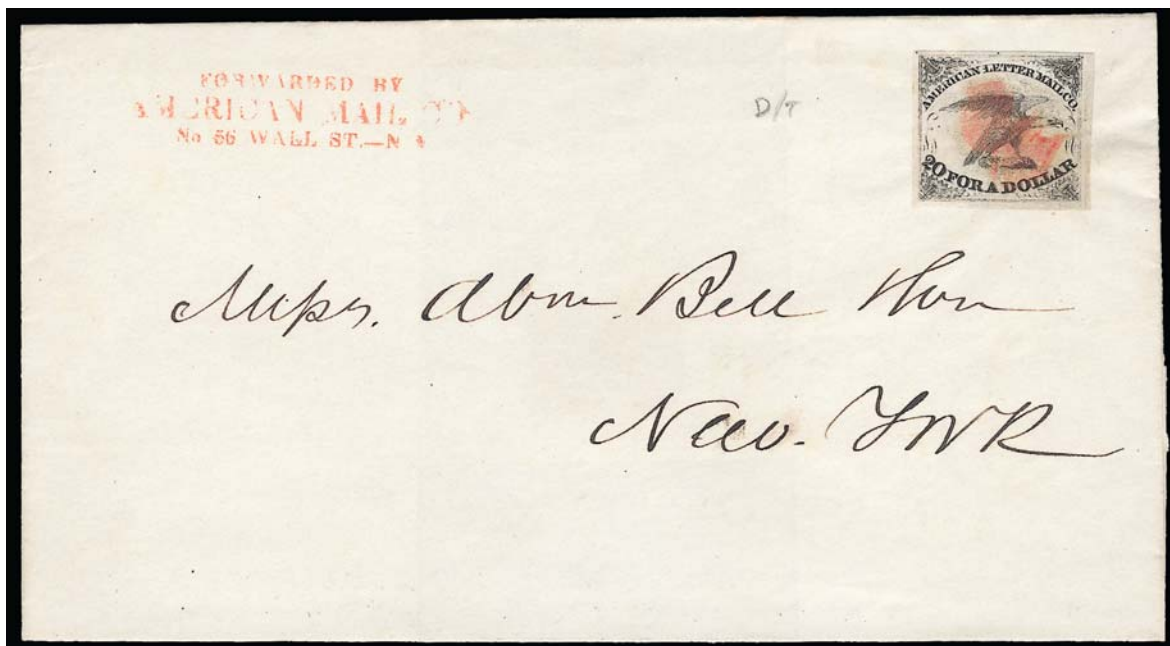 FORWARDED BY
AMERICAN MAIL CO
No 56 WALL ST.—N Y
D/T
AMERICAN LETTER MAIL CO.
20 FOR A DOLLAR
Messrs. Abm. Bell Son
New. York